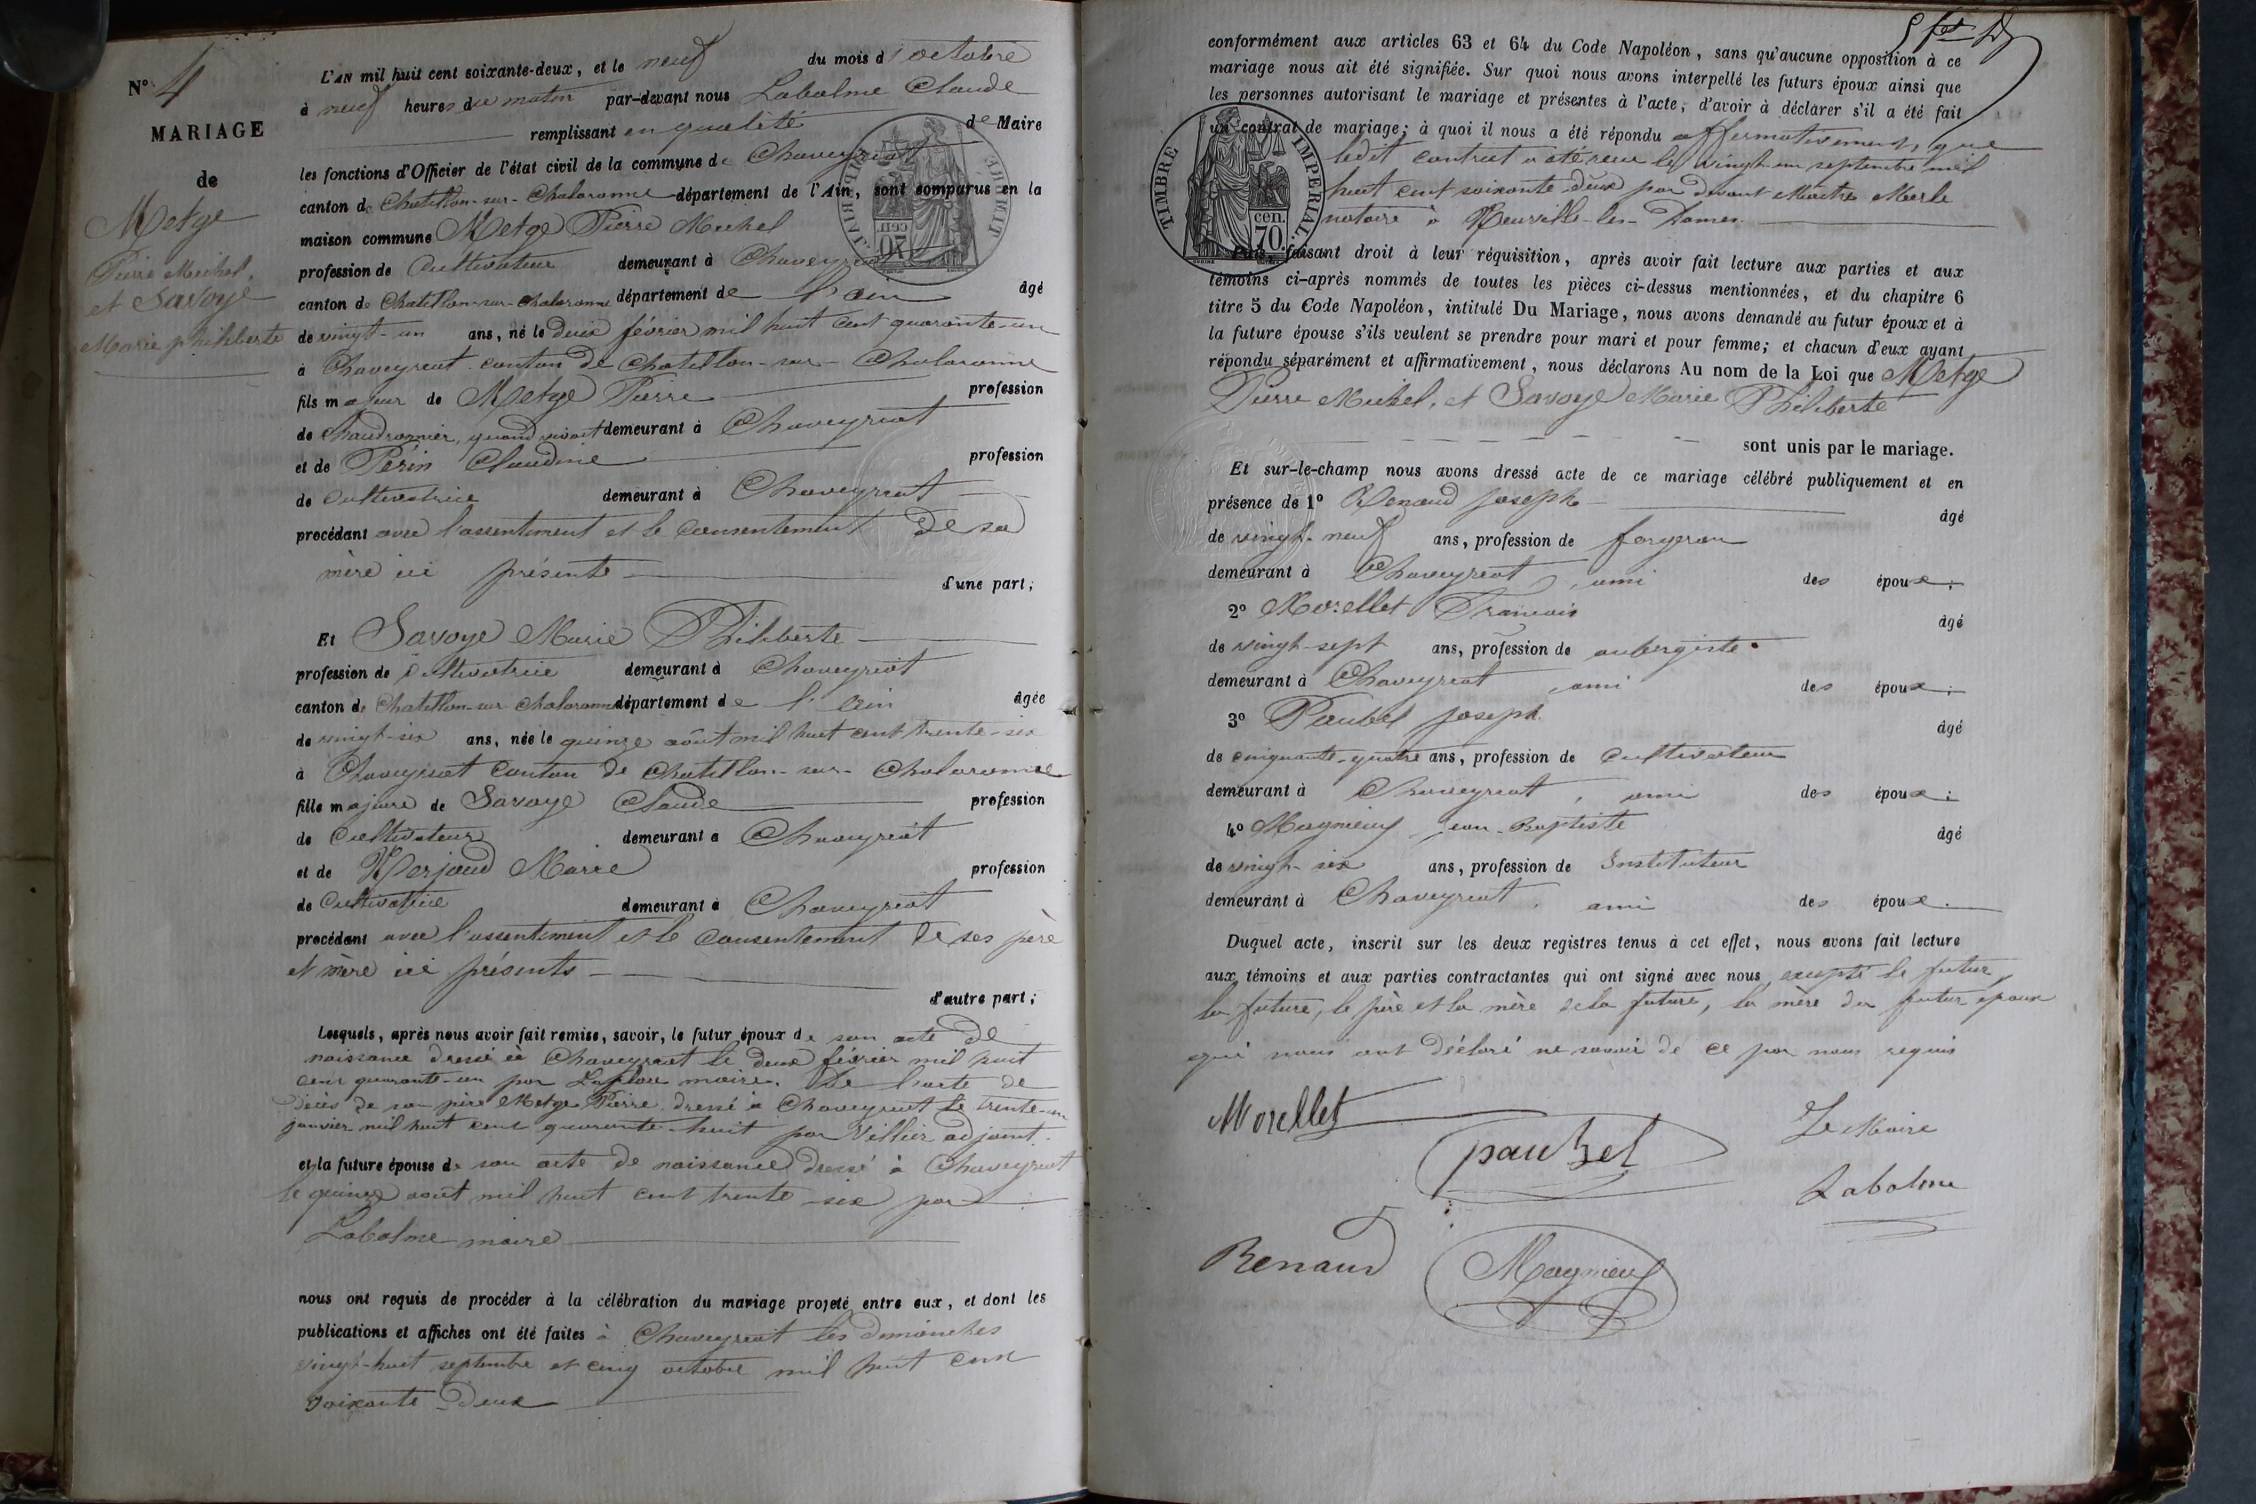 N° 4
MARIAGE
de
Metge
Pierre Michel,
et Savoye
Marie philiberte
L'AN mil huit cent soixante-deux, et le neuf du mois d'octobre
à neuf heures du matin par-devant nous Labalme Claude
remplissant en qualité de Maire
les fonctions d'Officier de l'état civil de la commune de Chaveyriat
canton de Chatillon-sur-Chalaronne département de l'Ain, sont comparus en la
maison commune Metge Pierre Michel
profession de Cultivateur demeurant à Chaveyriat
canton de Chatillon-sur-Chalaronne département de l'ain âgé
de vingt-un ans, né le deux février mil huit cent quarante-un
à Chaveyriat canton de Chatillon-sur-Chalaronne
fils majeur de Metge Pierre profession
de Chaudronnier, quand vivait demeurant à Chaveyriat
et de Périn Claudine profession
de cultivatrice demeurant à Chaveyriat
procédant avec l'assentiment et le consentement de sa
mère ici présente
d'une part;
Et Savoye Marie Philiberte
profession de Cultivatrice demeurant à Chaveyriat
canton de Chatillon-sur Chalaronne département de l'Ain âgée
de vingt-six ans, née le quinze août mil huit cent trente-six
à Chaveyriat canton de Chatillon-sur-Chalaronne
fille majeure de Savoye Claude profession
de Cultivateur demeurant à Chaveyriat
et de Merjaud Marie profession
de Cultivatrice demeurant à Chaveyriat
procédant avec l'assentiment et le consentement de ses père
et mère ici présents
d'autre part;
Lesquels, après nous avoir fait remise, savoir, le futur époux de son acte de
naissance dressé à Chaveyriat le deux février mil huit
cent quarante-un par maire. De l'acte de
décès de son père Metge Pierre dressé à Chaveyriat le trente-un
janvier mil huit cent quarante-huit par Villier adjoint.
et la future épouse de son acte de naissance dressé à Chaveyriat
le quinze août mil huit cent trente-six par
Labalme maire
nous ont requis de procéder à la célébration du mariage projeté entre eux, et dont les
publications et affiches ont été faites à Chaveyriat les dimanches
vingt-huit septembre et cinq octobre mil huit cent
soixante deux
conformément aux articles 63 et 64 du Code Napoléon, sans qu'aucune opposition à ce
mariage nous ait été signifiée. Sur quoi nous avons interpellé les futurs époux ainsi que
les personnes autorisant le mariage et présentes à l'acte, d'avoir à déclarer s'il a été fait
un contrat de mariage; à quoi il nous a été répondu affermativement, que
ledit contrat a été reçu le vingt-un septembre mil
huit cent soixante deux par devant Maître Merle
notaire à Neuville-les-Dames.
TIMBRE IMPÉRIAL
70 cen.
Puis, faisant droit à leur réquisition, après avoir fait lecture aux parties et aux
témoins ci-après nommés de toutes les pièces ci-dessus mentionnées, et du chapitre 6
titre 5 du Code Napoléon, intitulé Du Mariage, nous avons demandé au futur époux et à
la future épouse s'ils veulent se prendre pour mari et pour femme; et chacun d'eux ayant
répondu séparément et affirmativement, nous déclarons Au nom de la Loi que Metge
Pierre Michel, et Savoye Marie Philiberte
sont unis par le mariage.
Et sur-le-champ nous avons dressé acte de ce mariage célébré publiquement et en
présence de 1° Renaud Joseph âgé
de vingt-neuf ans, profession de forgeron
demeurant à Chaveyriat, ami des époux;
2° Morellet Francois âgé
de vingt-sept ans, profession de aubergiste
demeurant à Chaveyriat, ami des époux;
3° Paubel Joseph. âgé
de cinquante-quatre ans, profession de cultivateur
demeurant à Chaveyriat, ami des époux;
4° Magnieuf Jean-Baptiste âgé
de vingt-six ans, profession de Instituteur
demeurant à Chaveyriat, ami des époux.
Duquel acte, inscrit sur les deux registres tenus à cet effet, nous avons fait lecture
aux témoins et aux parties contractantes qui ont signé avec nous, excepté le futur,
la future, le père et la mère de la future, la mère du futur époux
qui nous ont déclaré ne savoir de ce par nous requis
Morellet
paubel
Le Maire
Labalme
Renaud
Magnieuf